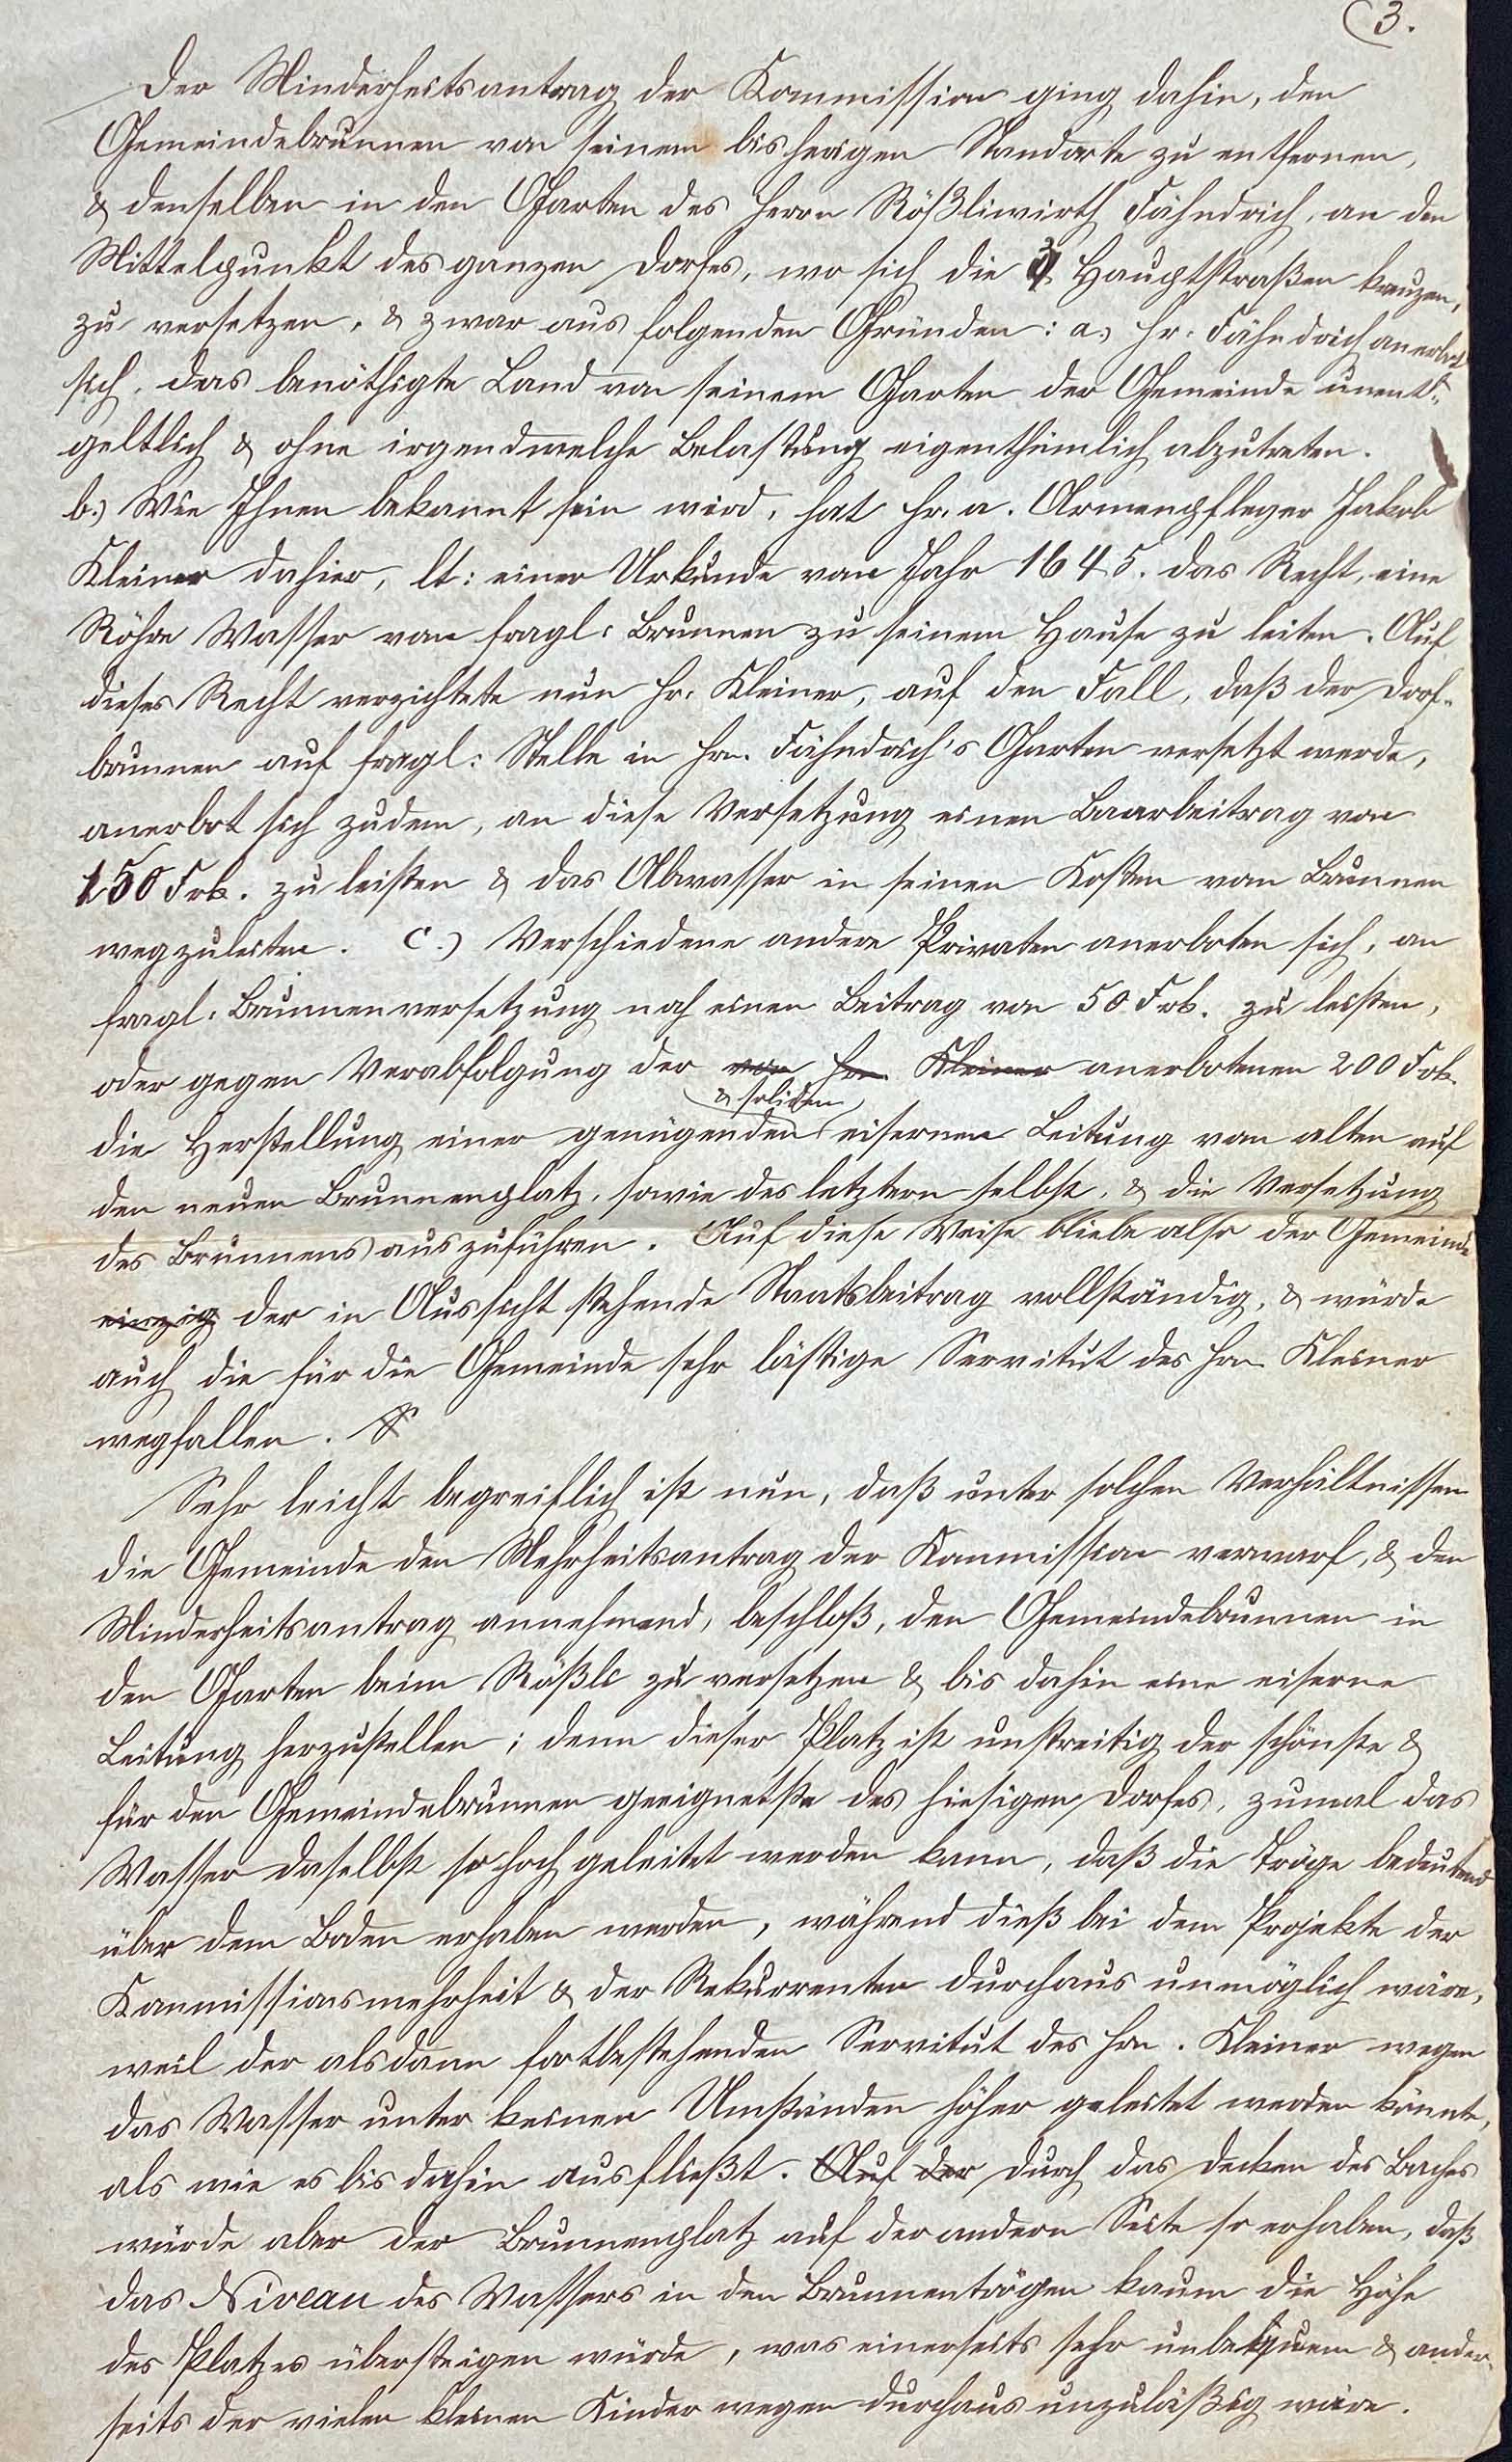 3.
Der Minderheitsantrag der Kommission ging dahin, den
Gemeindebrunnen von seinem bisherigen Standorte zu entfernen,
& denselben in den Garten des Herrn Rößliwirth Fähndrich, an den
Mittelpunkt des ganzen Dorfes, wo sich die 3 Hauptstraßen kreuzen,
zu versetzen, & zwar aus folgenden Gründen: a.) Hr. Fähndrich anerbot
sich, das benöthigte Land von seinem Garten der Gemeinde unent-
geltlich & ohne irgendwelche Belastung eigenthümlich abzutreten.
b.) Wie Ihnen bekannt sein wird, hat Hr. a. Armenpfleger Jakob
Kleiner dahier, lt: einer Urkunde vom Jahr 1645. das Recht, eine
Röhre Wasser vom fragl: Brunnen zu seinem Hause zu leiten. Auf
dieses Recht verzichtete nun Hr. Kleiner, auf den Fall, daß der Dorf-
brunnen auf fragl: Stelle in Hrn. Fähndrich's Garten versetzt werde,
anerbot sich zudem, an diese Versetzung einen Baarbeitrag von
150 Frk. zu leisten & das Abwasser in seinen Kosten vom Brunnen
wegzuleiten. c.) Verschiedene andere Privaten anerboten sich, an
fragl: Brunnenversetzung noch einen Beitrag von 50 Frk. zu leisten,
oder gegen Verabfolgung der von Hrn. Kleiner anerbotenen 200 Frk.
& soliden
die Herstellung einer genügenden eisernen Leitung vom alten auf
den neuen Brunnenplatz, sowie des letztern selbst, & die Versetzung
des Brunnens auszuführen. Auf diese Weise bliebe also der Gemeinde
einzig der in Aussicht stehende Staatsbeitrag vollständig, & würde
auch die für die Gemeinde sehr lästige Servitut des Hrn. Kleiner
wegfallen. S
Sehr leicht begreiflich ist nun, daß unter solchen Verhältnissen
die Gemeinde den Mehrheitsantrag der Kommission verwarf, & den
Minderheitsantrag annehmend, beschloß, den Gemeindebrunnen in
den Garten beim Rößli zu versetzen & bis dahin eine eiserne
Leitung herzustellen; denn dieser Platz ist unstreitig der schönste &
für den Gemeindebrunnen geeignetste des hiesigen Dorfes, zumal das
Wasser daselbst so hoch geleitet werden kann, daß die Tröge bedeutend
über dem Boden erhaben werden, während dieß bei dem Projekte der
Kommissionsmehrheit & der Rekurrenten durchaus unmöglich wäre,
weil der alsdann fortbestehenden Servitut des Hrn. Kleiner wegen
das Wasser unter keinen Umständen höher geleitet werden könnte,
als wie es bis dahin ausfließt. Auf der Durch das Decken des Baches
würde aber der Brunnenplatz auf der andern Seite so erhaben, daß
das Niveau des Wassers in den Brunnentrögen kaum die Höhe
des Platzes übersteigen würde, was einerseits sehr unbequem & ander-
seits der vielen kleinen Kinder wegen durchaus unzuläßig wäre.